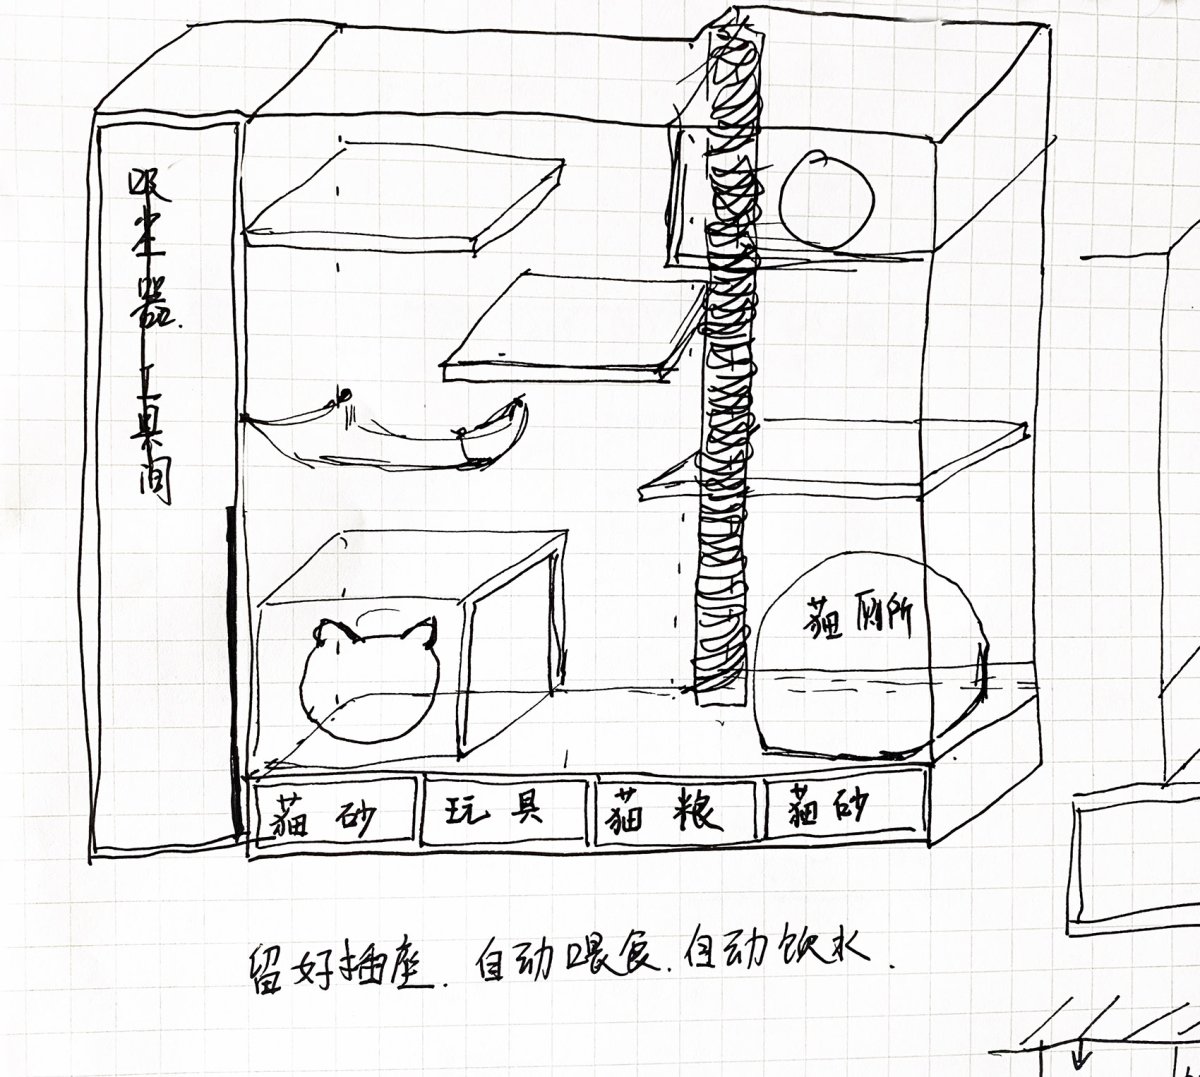 吸尘器.工具间
貓厕所
貓砂
玩具
貓粮
貓砂
留好插座.自动喂食.自动饮水.